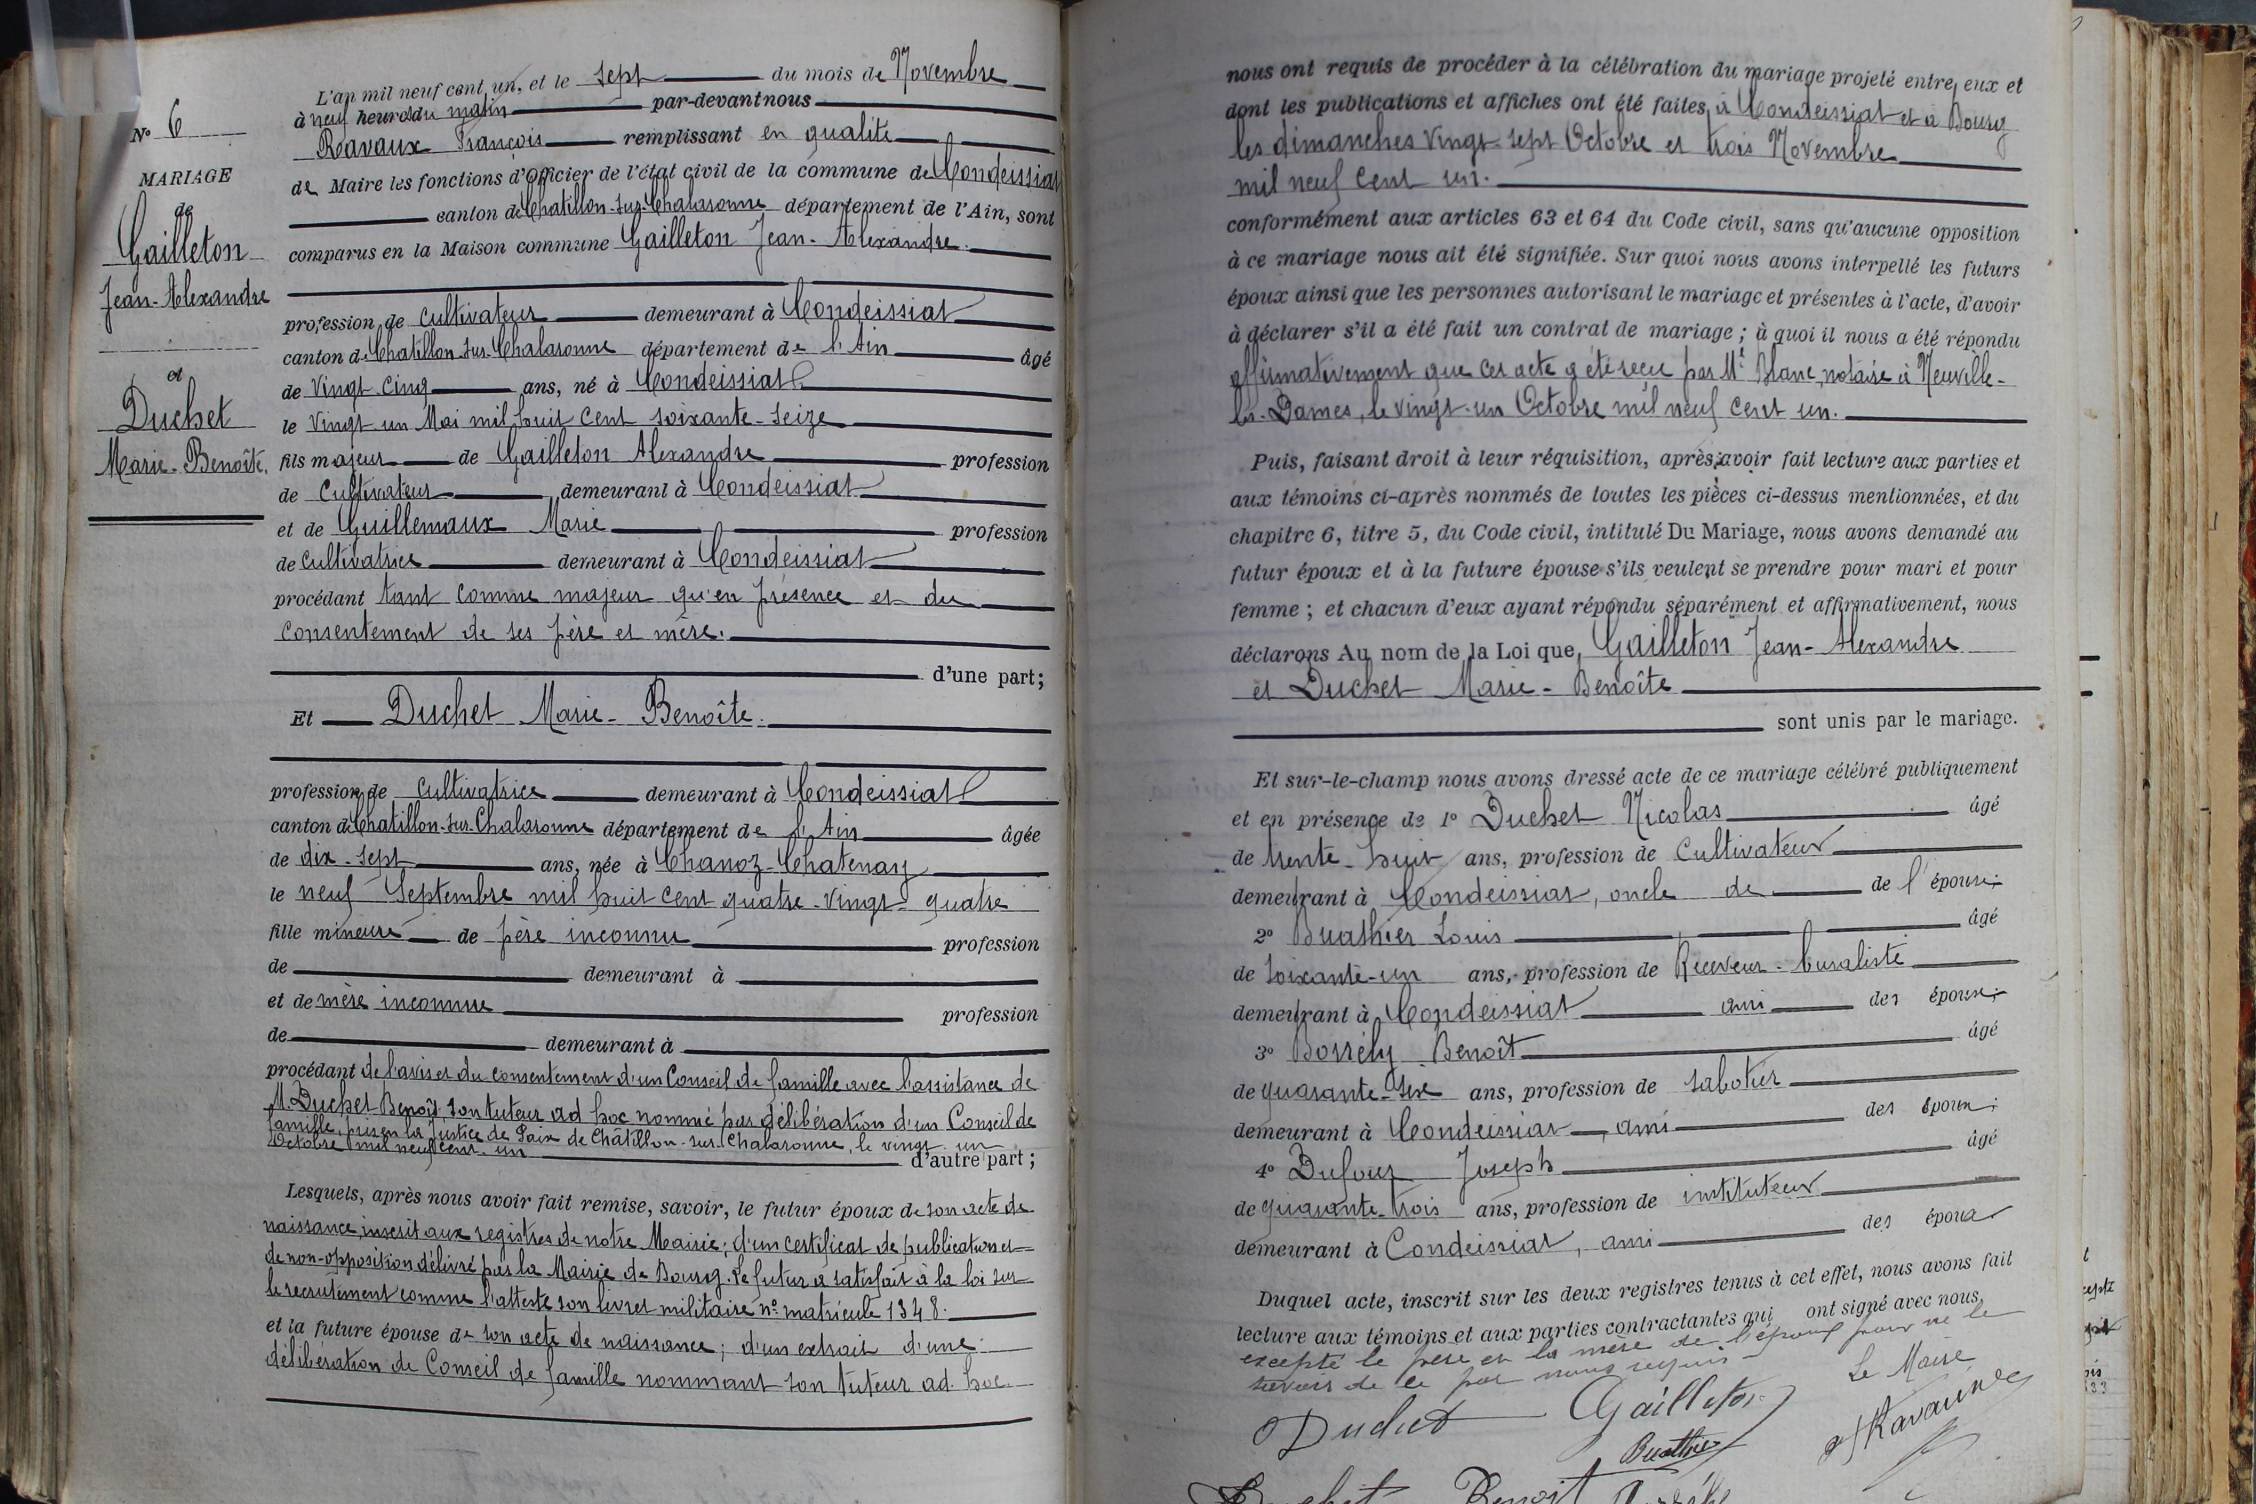 N° 6
MARIAGE
de
Gailleton
Jean-Alexandre
et
Duchet
Marie-Benoîte.
L'an mil neuf cent un, et le sept du mois de Novembre
à neuf heures du matin par-devant nous
Ravaux François remplissant en qualité
de Maire les fonctions d'Officier de l'état civil de la commune de Condeissiat
canton de Chatillon-sur-Chalaronne département de l'Ain, sont
comparus en la Maison commune Gailleton Jean-Alexandre.
profession de cultivateur demeurant à Condeissiat
canton de Chatillon-sur-Chalaronne département de l'Ain âgé
de vingt cinq ans, né à Condeissiat
le vingt un Mai mil huit cent soixante-seize
fils majeur de Gailleton Alexandre profession
de Cultivateur demeurant à Condeissiat
et de Guillemaux Marie profession
de Cultivatrice demeurant à Condeissiat
procédant tant comme majeur qu'en présence et du
consentement de ses père et mère.
d'une part;
Et Duchet Marie-Benoîte.
profession de cultivatrice demeurant à Condeissiat
canton de Chatillon-sur-Chalaronne département de l'Ain âgée
de dix-sept ans, née à Chanoz-Chatenay
le neuf Septembre mil huit cent quatre-vingt-quatre
fille mineure de père inconnu profession
de demeurant à
et de mère inconnue profession
de demeurant à
procédant de l'avis et du consentement d'un Conseil de famille avec l'assistance de
M. Duchet Benoît son tuteur ad hoc nommé par délibération d'un Conseil de
famille, pris en la Justice de Paix de Châtillon-sur-Chalaronne, le vingt-un
Octobre mil neuf cent un d'autre part;
Lesquels, après nous avoir fait remise, savoir, le futur époux de son acte de
naissance, inscrit aux registres de notre Mairie; d'un certificat de publication et
de non-opposition délivré par la Mairie de Bourg. Le futur a satisfait à la loi sur
le recrutement comme l'atteste son livret militaire n° matricule 1348.
et la future épouse de son acte de naissance; d'un extrait d'une
délibération de Conseil de famille nommant son tuteur ad hoc.
nous ont requis de procéder à la célébration du mariage projeté entre eux et
dont les publications et affiches ont été faites à Condeissiat et à Bourg
les dimanches vingt-sept Octobre et trois Novembre
mil neuf cent un.
conformément aux articles 63 et 64 du Code civil, sans qu'aucune opposition
à ce mariage nous ait été signifiée. Sur quoi nous avons interpellé les futurs
époux ainsi que les personnes autorisant le mariage et présentes à l'acte, d'avoir
à déclarer s'il a été fait un contrat de mariage; à quoi il nous a été répondu
affirmativement que cet acte a été reçu par Me Blanc, notaire à Neuville-
les-Dames, le vingt-un Octobre mil neuf cent un.
Puis, faisant droit à leur réquisition, après avoir fait lecture aux parties et
aux témoins ci-après nommés de toutes les pièces ci-dessus mentionnées, et du
chapitre 6, titre 5, du Code civil, intitulé Du Mariage, nous avons demandé au
futur époux et à la future épouse s'ils veulent se prendre pour mari et pour
femme; et chacun d'eux ayant répondu séparément et affirmativement, nous
déclarons Au nom de la Loi que, Gailleton Jean-Alexandre
et Duchet Marie-Benoîte
sont unis par le mariage.
Et sur-le-champ nous avons dressé acte de ce mariage célébré publiquement
et en présence de 1° Duchet Nicolas âgé
de trente-huit ans, profession de Cultivateur
demeurant à Condeissiat, oncle de de l'épouse;
2° Buathier Louis âgé
de soixante-un ans, profession de Receveur-buraliste
demeurant à Condeissiat ami des époux;
3° Borrély Benoît âgé
de quarante-six ans, profession de sabotier
demeurant à Condeissiat, ami des époux;
4° Dufour Joseph âgé
de quarante-trois ans, profession de instituteur
demeurant à Condeissiat, ami des époux
Duquel acte, inscrit sur les deux registres tenus à cet effet, nous avons fait
lecture aux témoins et aux parties contractantes qui ont signé avec nous,
excepté le père et la mère de l'époux pour ne le
savoir de ce par nous requis
Le Maire
Duchet Gailleton
Buathier
Ravaux
Duchet Benoit